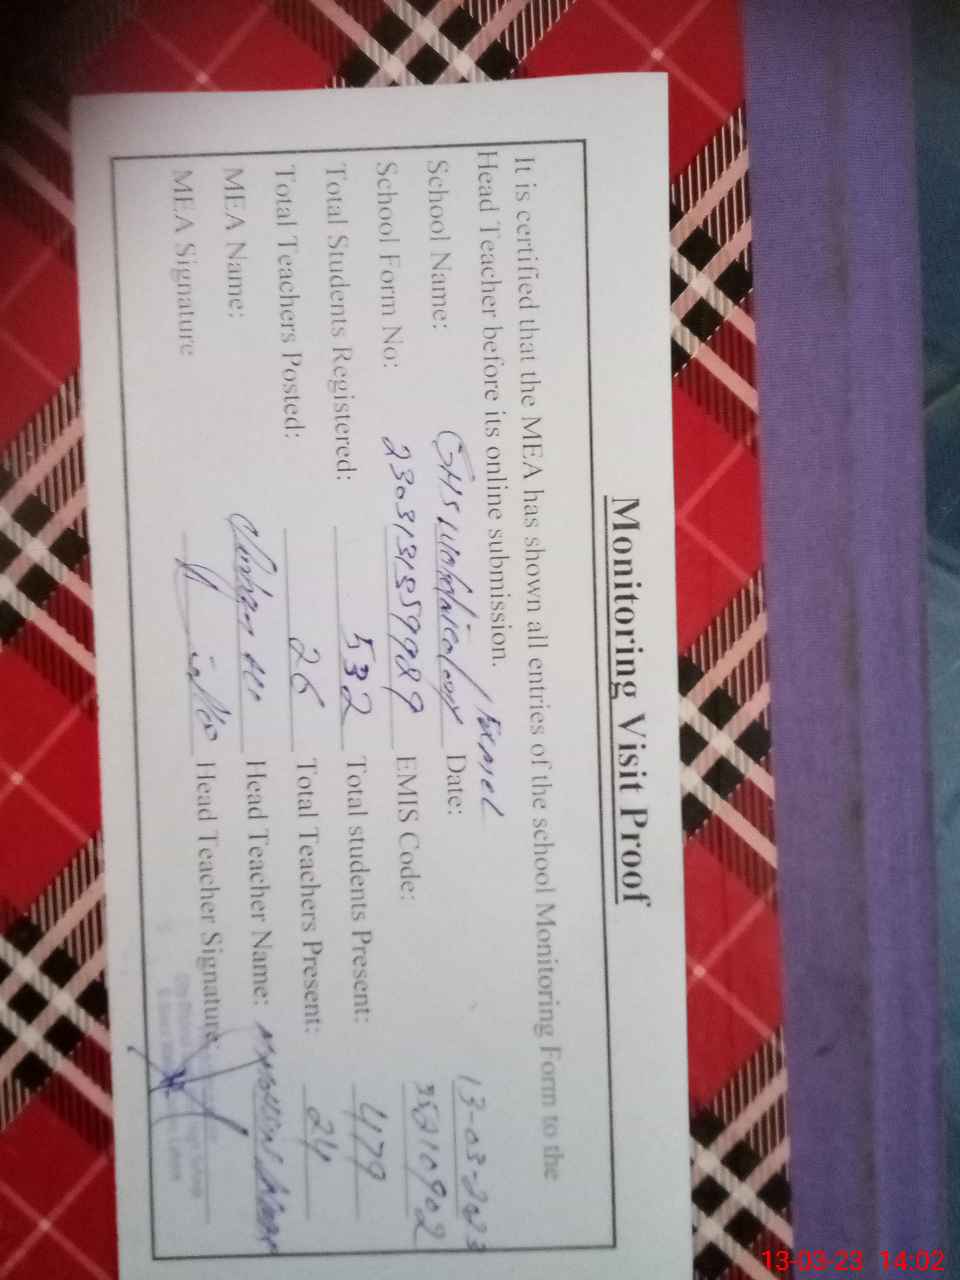 Monitoring Visit Proof
It is certified that the MEA has shown all entries of the school Monitoring Form to the
Head Teacher before its online submission.
School Name: GHS Date: 13-03-2023
School Form No: 2303131559989 EMIS Code:
Total Students Registered: 532 Total students Present: 479
Total Teachers Posted: 26 Total Teachers Present: 24
MEA Name: Head Teacher Name:
MEA Signature Head Teacher Signature
13-03-23 14:02